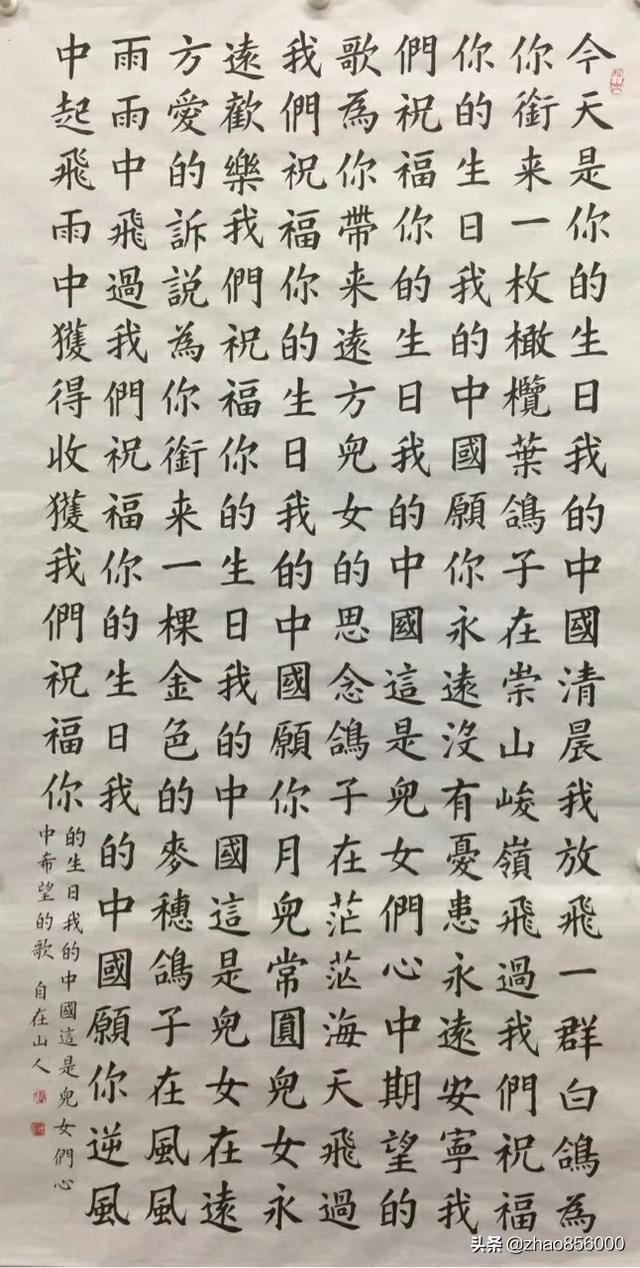 今天是你的生日我的中國清晨我放飛一群白鴿為
你銜来一枚橄欖葉鴿子在崇山峻嶺飛過我們祝福
你的生日我的中國願你永遠沒有憂患永遠安寧我
們祝福你的生日我的中國這是兒女們心中期望的
歌為你帶来遠方兒女的思念鴿子在茫茫海天飛過
我們祝福你的生日我的中國願你月兒常圓兒女永
遠歡樂我們祝福你的生日我的中國這是兒女在遠
方愛的訴說為你銜来一棵金色的麥穗鴿子在風風
雨雨中飛過我們祝福你的生日我的中國願你逆風
中起飛雨中獲得收獲我們祝福你
的生日我的中國這是兒女們心
中希望的歌 自在山人
头条 @zhao856000